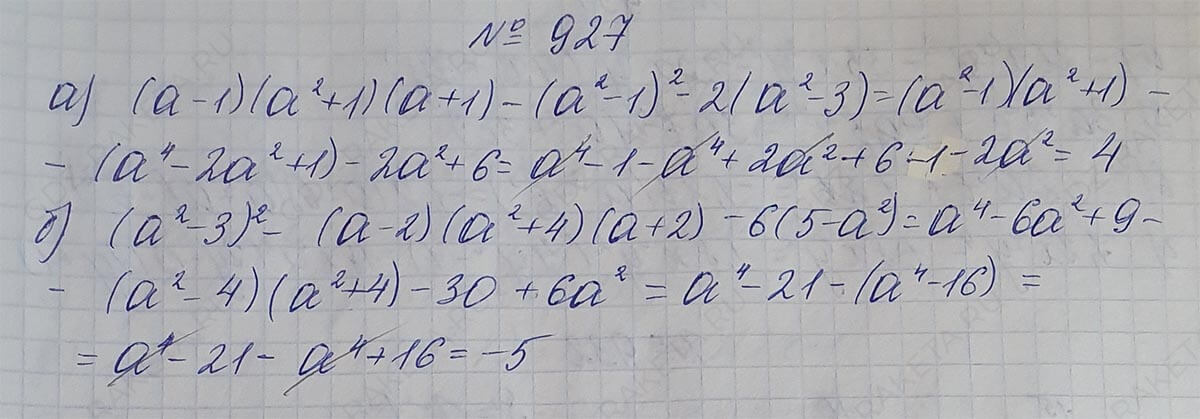 № 927
а) (a-1)(a²+1)(a+1) - (a²-1)² - 2(a²-3) = (a²-1)(a²+1) -
- (a⁴-2a²+1) - 2a²+6 = a⁴-1-a⁴+2a²+6-1-2a² = 4
б) (a²-3)² - (a-2)(a²+4)(a+2) - 6(5-a²) = a⁴-6a²+9-
- (a²-4)(a²+4) - 30 + 6a² = a⁴-21-(a⁴-16) =
= a⁴-21-a⁴+16 = -5